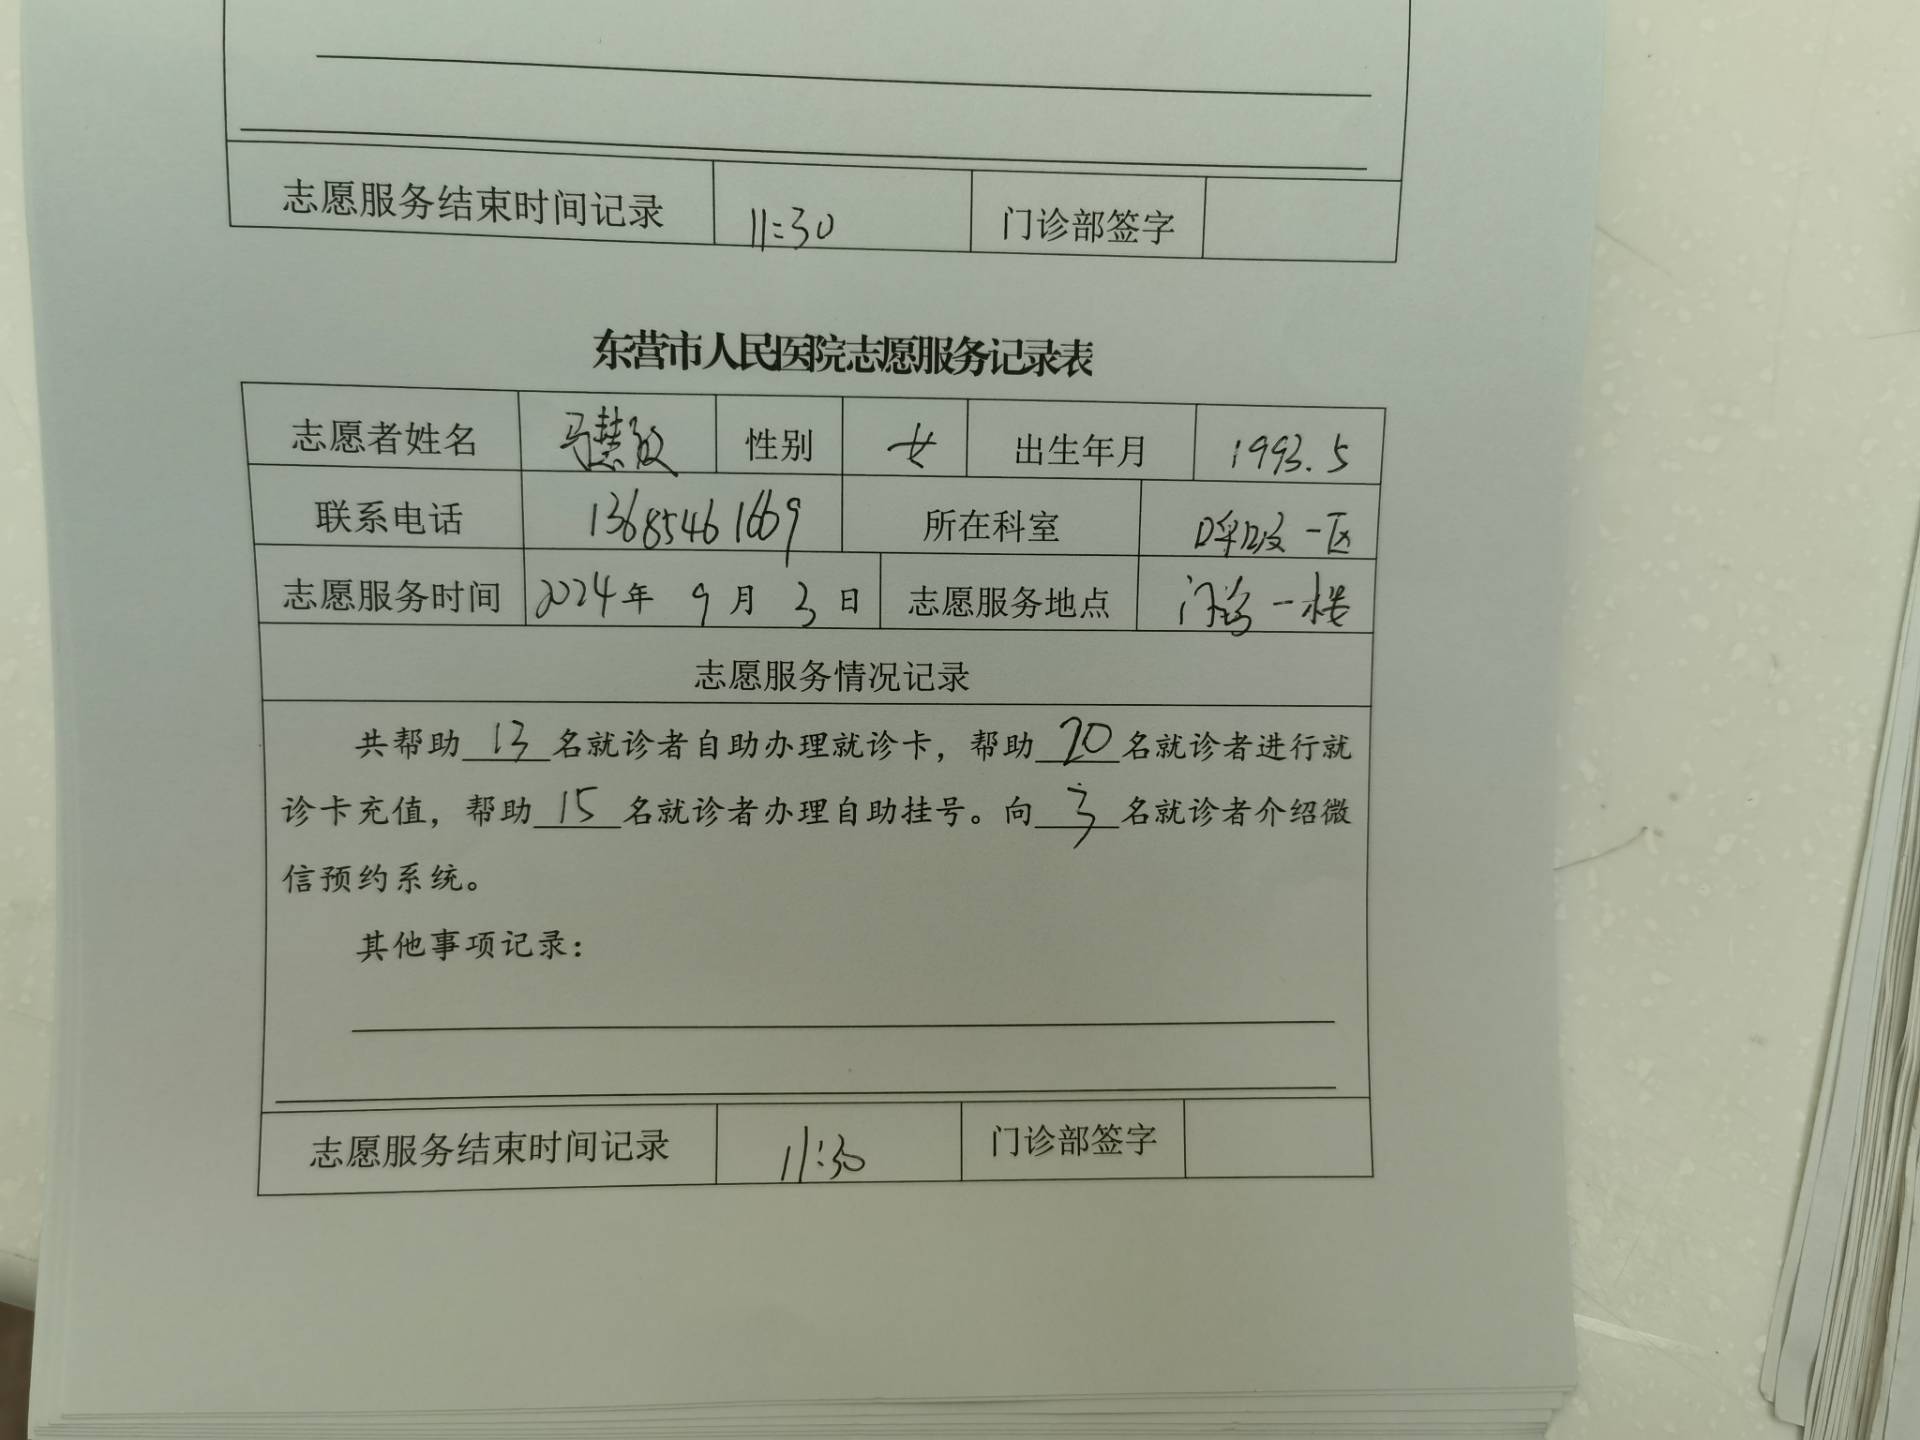 志愿服务结束时间记录 11:30 门诊部签字
东营市人民医院志愿服务记录表
志愿者姓名 马慧敏 性别 女 出生年月 1993.5
联系电话 13685461669 所在科室 呼吸一区
志愿服务时间 2024年 9月 3日 志愿服务地点 门诊一楼
志愿服务情况记录
共帮助 13 名就诊者自助办理就诊卡，帮助 20 名就诊者进行就
诊卡充值，帮助 15 名就诊者办理自助挂号。向 3 名就诊者介绍微
信预约系统。
其他事项记录：
志愿服务结束时间记录 11:30 门诊部签字